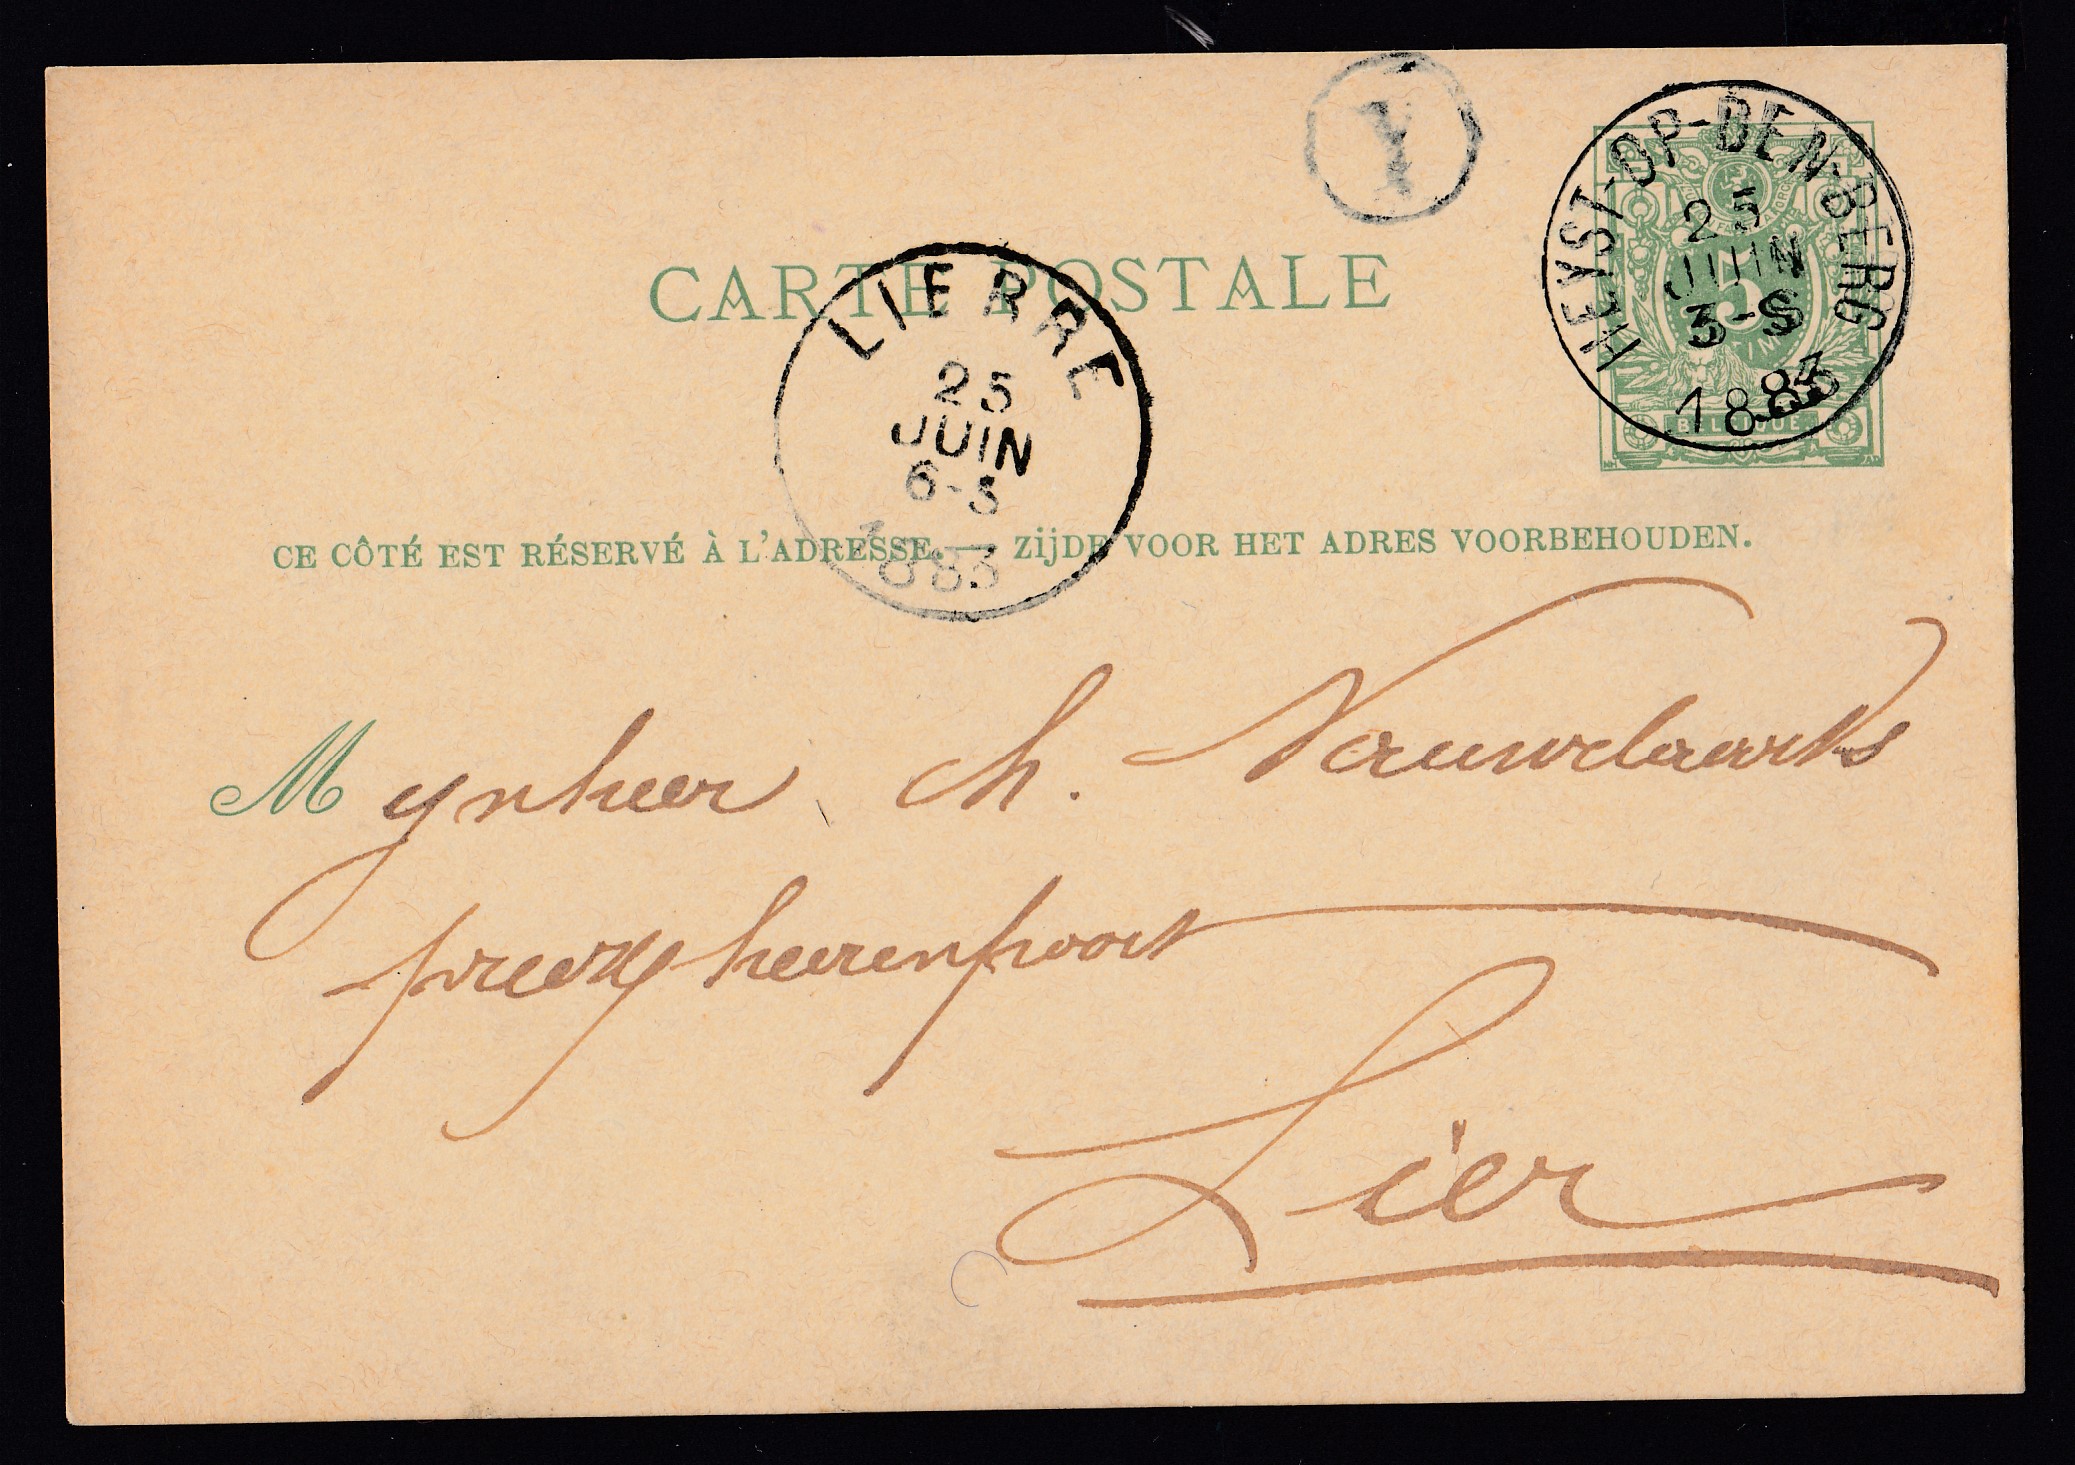 Y
HEYST-OP-DEN-BERG
25
JUIN
3-S
1883
5
BELGIQUE
CARTE POSTALE
LIERRE
25
JUIN
6-S
1883
CE CÔTÉ EST RÉSERVÉ À L'ADRESSE. ZijDE VOOR HET ADRES VOORBEHOUDEN.
Mynheer Ch. Nauwelaerts
heerenpoort
Lier